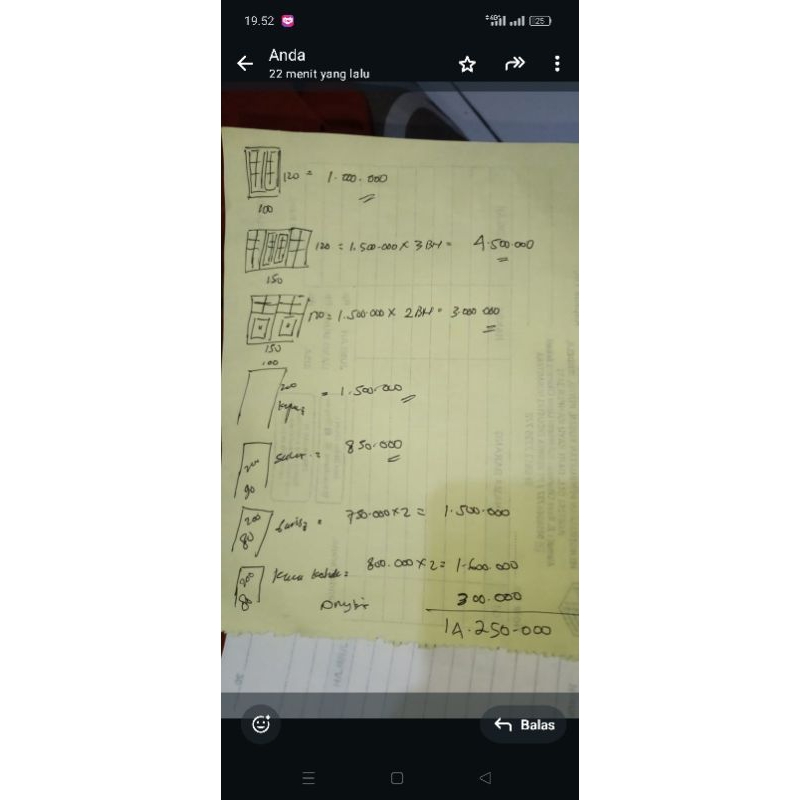 19.52
25
Anda
22 menit yang lalu
120 = 1.000.000
100
120 = 1.500.000 x 3 BH = 4.500.000
150
120 = 1.500.000 x 2 BH = 3.000.000
150
100
200 = 1.500.000
200 850.000
90
200 750.000 x 2 = 1.500.000
80
200 800.000 x 2 = 1.600.000
80
300.000
14.250.000
Balas